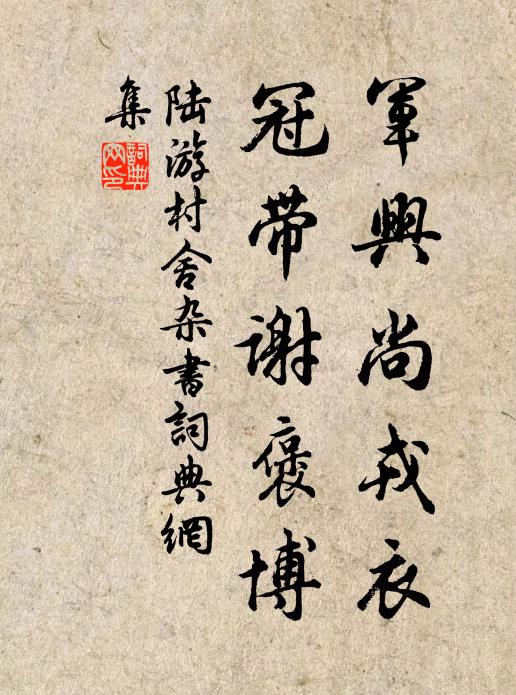 軍興尚戎衣
冠帶謝褒博
陸游村舍杂書詞典網
集
詞典
网印